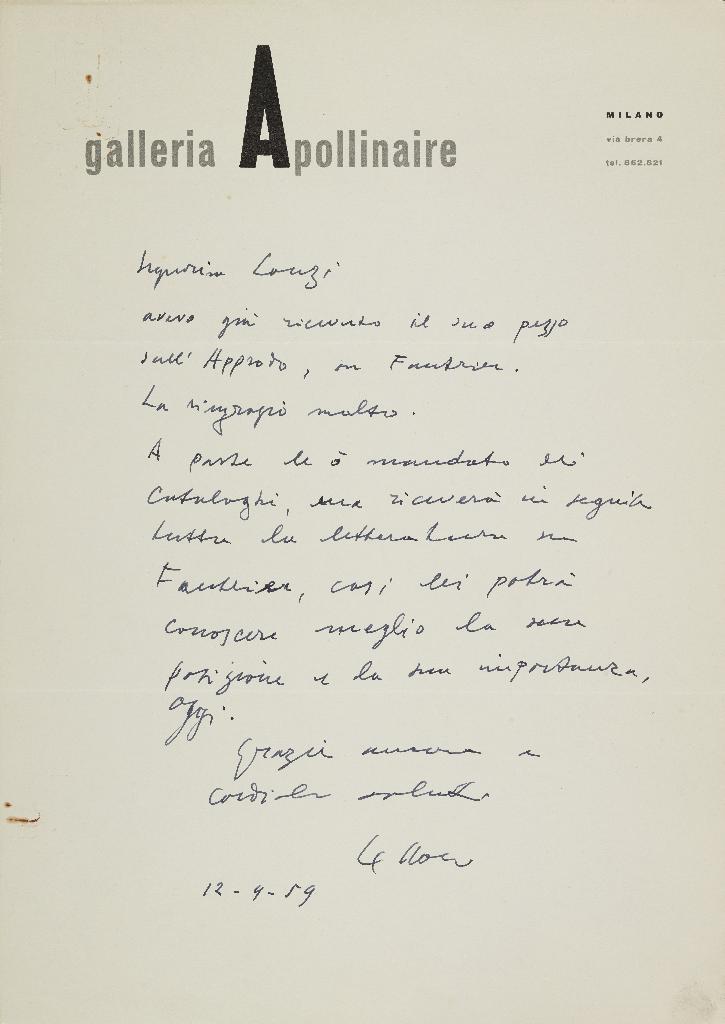 galleria Apollinaire
MILANO
via brera 4
tel. 862.821
Signorina Lonzi
avevo già ricevuto il suo pezzo
sull' Approdo, su Fautrier.
La ringrazio molto.
A parte le ò mandato dei
Cataloghi, ma riceverà in seguito
tutta la letteratura su
Fautrier, così lei potrà
conoscere meglio la sua
posizione e la sua importanza,
oggi.
Grazie ancora e
cordiali saluti
Le Noci
12-4-59